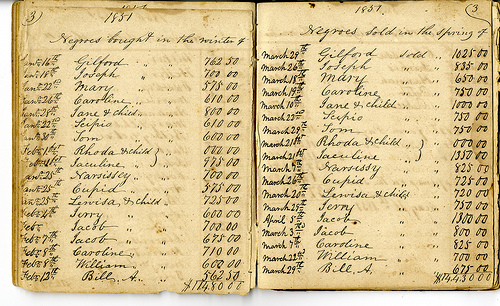 3)
1851
Negroes bought in the winter of
Jan: 16th Gilford " 762 50
Jan: 18th Joseph " 700 00
Jan: 22nd Mary " 575 00
Jan: 26th Caroline " 610 00
Jan: 28th Jane & child " 800 00
Jan: 22nd Scipio " 610 00
Jan: 30th Tom " 600 00
Feb: 1st Rhoda & child } 000 00
Feb: 21st Jaculine } 975 00
Jan: 25th Narsissy " 700 00
Jan: 25th Cupid " 575 00
Jan: 25th Lewisa & child " 725 00
Feb: Jerry " 600 00
Feb: Jacob " 700 00
Feb: 7th Jacob " 675 00
Feb: 8th Caroline " 710 00
Feb: 8th William " 600 00
Feb: 12th Bill, A. " 562 50
$11480 00
(3
1851
Negroes sold in the spring of
March 29th Gilford sold " 1025 00
March 26th Joseph " " 835 00
March 18th Mary " " 650 00
March 19th Caroline " " 750 00
March 10th Jane & child " " 1000 00
March 22nd Scipio " " 750 00
March 28th Tom " " 750 00
March 21st Rhoda & child } 000 00
March 21st Jaculine } 1350 00
March Narsissy " " 825 00
March 20th Cupid " " 725 00
March 20th Lewisa & child " " 720 00
March 25th Jerry " " 750 00
April Jacob " " 1300 00
March 3rd Jacob " " 800 00
March 7th Caroline " " 825 00
March 22nd William " " 700 00
March 29th Bill, A. " " 675 00
$14,430 00